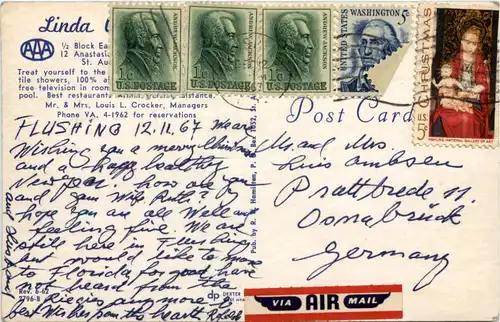 Linda
AAA
½ Block Ea
12 Anastasia
St. Au
Treat yourself to the
tile showers, 100% a
free television in rooms
pool. Best restaurant distance.
Mr. & Mrs. Louis L. Crocker, Managers
Phone VA. 4-1962 for reservations
1¢ ANDREW JACKSON
U.S. POSTAGE
1¢ ANDREW JACKSON
U.S. POSTAGE
1¢ ANDREW JACKSON
U.S. POSTAGE
WASHINGTON 5¢
UNITED STATES
CHRISTMAS
U.S.
MEMLING: NATIONAL GALLERY OF ART
Post Card
FLUSHING 12.11.67 We are
Wishing you a merry Christmas
and a happy healthy
New Year. How are you
and your Wife Ruth? I
hope you are all Well and
feeling fine. We are
still here in Flushing
but would like to move
to Florida for good have
not heard from the
any more
best Wishes from the hearth
Mr and Mrs.
Osnabrück
Germany
Pub. by R.
Rev. 6-62
2796-B
dp DEXTER
VIA AIR MAIL